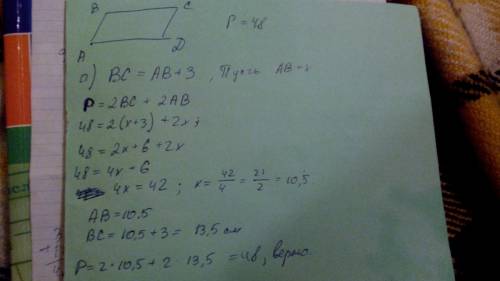 B C
P = 48
A D
a) BC = AB + 3, Пусть AB = x
P = 2BC + 2AB
48 = 2(x+3) + 2x;
48 = 2x + 6 + 2x
48 = 4x - 6
4x = 42; x = 42/4 = 21/2 = 10,5
AB = 10.5
BC = 10,5 + 3 = 13,5 см
P = 2 · 10,5 + 2 · 13,5 = 48, верно.